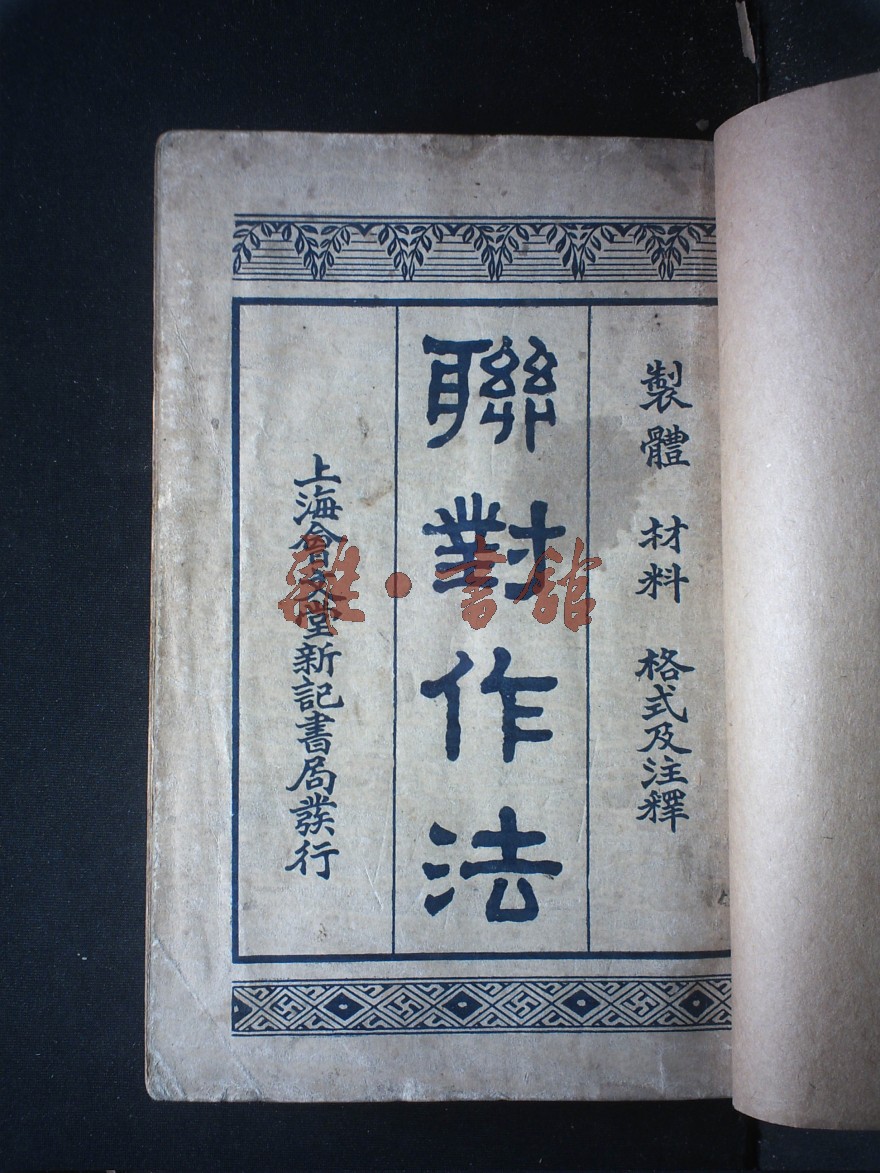 製體 材料 格式及注釋
聯對作法
上海會文堂新記書局發行
雜·書館